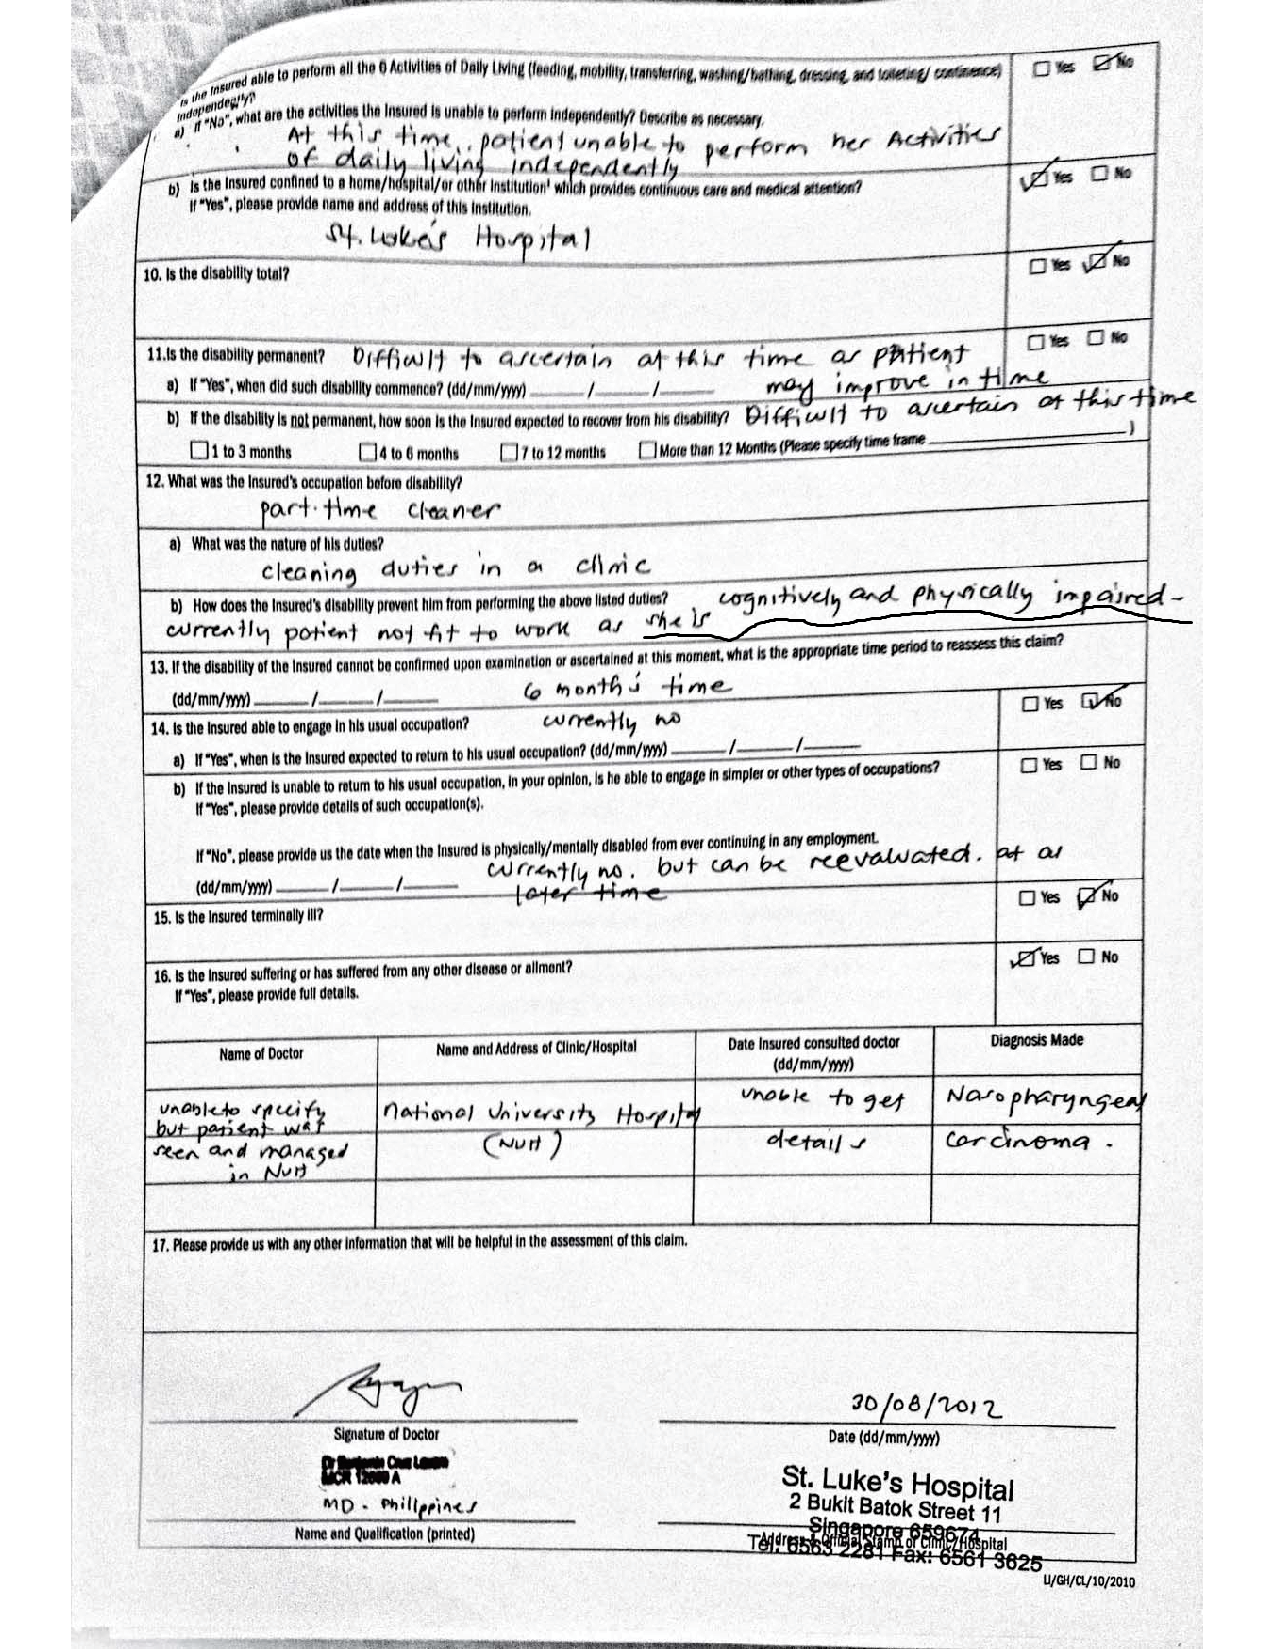 Is the Insured able to perform all the 6 Activities of Daily Living (feeding, mobility, transferring, washing/bathing, dressing, and toileting/ continence)
independently?
Yes No
a) If "No", what are the activities the Insured is unable to perform independently? Describe as necessary.
At this time, patient unable to perform her Activities
of daily living independently
b) Is the Insured confined to a home/hospital/or other institution' which provides continuous care and medical attention?
Yes No
If "Yes", please provide name and address of this institution.
St. Luke's Hospital
10. Is the disability total?
Yes No
11.Is the disability permanent? Difficult to ascertain at this time as patient
Yes No
a) If "Yes", when did such disability commence? (dd/mm/yyyy) ____/____/____ may improve in time
b) If the disability is not permanent, how soon is the Insured expected to recover from his disability? Difficult to ascertain at this time
1 to 3 months 4 to 6 months 7 to 12 months More than 12 Months (Please specify time frame ____)
12. What was the Insured's occupation before disability?
part-time cleaner
a) What was the nature of his duties?
cleaning duties in a clinic
b) How does the Insured's disability prevent him from performing the above listed duties? cognitively and physically impaired-
currently patient not fit to work as she is
13. If the disability of the Insured cannot be confirmed upon examination or ascertained at this moment, what is the appropriate time period to reassess this claim?
(dd/mm/yyyy) ____/____/____ 6 month's time
14. Is the Insured able to engage in his usual occupation? currently no
Yes No
a) If "Yes", when is the Insured expected to return to his usual occupation? (dd/mm/yyyy) ____/____/____
b) If the Insured is unable to return to his usual occupation, in your opinion, is he able to engage in simpler or other types of occupations?
Yes No
If "Yes", please provide details of such occupation(s).
If "No", please provide us the date when the Insured is physically/mentally disabled from ever continuing in any employment.
(dd/mm/yyyy) ____/____/____ currently no. but can be reevaluated. at a
later time
15. Is the Insured terminally ill?
Yes No
16. Is the Insured suffering or has suffered from any other disease or ailment?
Yes No
If "Yes", please provide full details.
Name of Doctor Name and Address of Clinic/Hospital Date Insured consulted doctor Diagnosis Made
(dd/mm/yyyy)
unable to specify National University Hospital unable to get Nasopharyngeal
but patient was (NUH) details carcinoma.
seen and managed
in NUH
17. Please provide us with any other information that will be helpful in the assessment of this claim.
30/08/2012
Signature of Doctor Date (dd/mm/yyyy)
MD - Philippines
Name and Qualification (printed)
St. Luke's Hospital
2 Bukit Batok Street 11
Singapore 659674
Address & Official Stamp of Clinic/Hospital
Tel: 6563 2281 Fax: 6561 3625
LI/GH/CL/10/2010